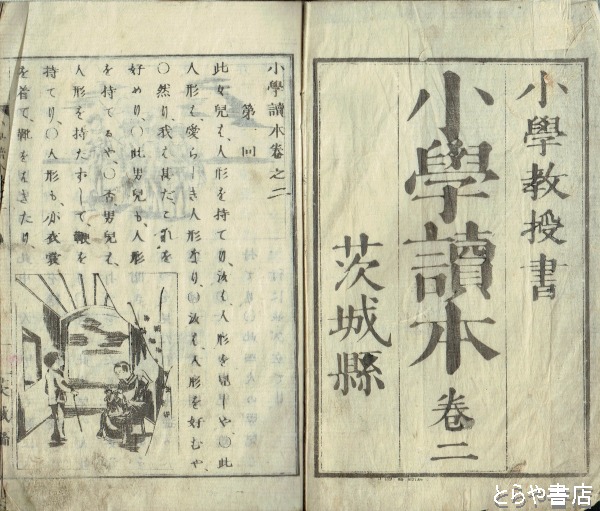 小學教授書
小學讀本 卷二
茨城縣
小學讀本卷之二
第一回
此女兒は、人形を持てり、汝は、人形を見しや〇此
人形は、愛らしき人形なり、〇汝は、人形を好むや、
〇然り、我は甚だこれを
好めり、〇此男兒も、人形
を持てるや、〇否男兒は、
人形を持たずして、鞭を
持てり、〇人形も、亦衣裳
を着て、靴をはきたり、
とらや書店